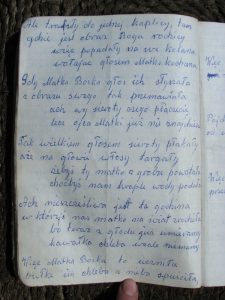 Aż trafiły do jednej kaplicy, tam
gdzie jest obraz Boga rodzicy
wnie popadały na swe kolana
wołając głosem Matko kochana
Gdy Matka Boska głos ich słyszała
z obrazu swego tak przemawiała
ach wy sieroty mego
lecz ojca Matki już nie znajdziecie
Tak wielkim głosem sieroty płakały
aż na głowie włosy targały
żebyś ty matko z grobu powstała
choćbyś nam kropla wody podała
Ach nieszczęśliwa jest ta godzina
w którejś nas matko na świat zrodziła
bo teraz z głodu już umieramy
kawałka chleba wcale nie mamy
Więc Matka Boska to uczyniła
chleba z nieba spuściła
Więc